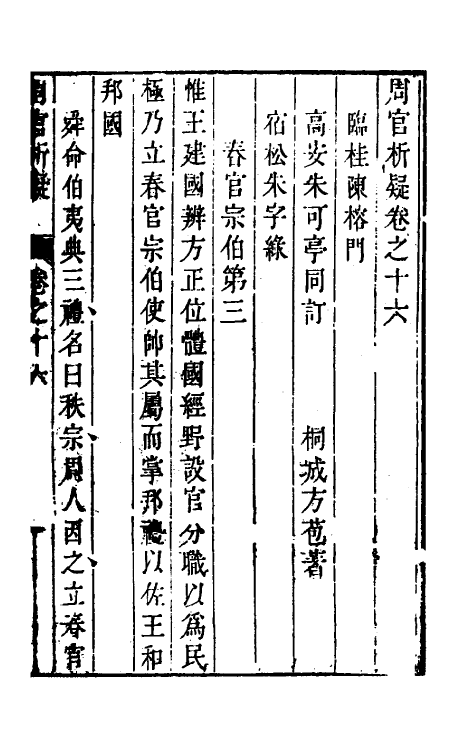 周官析疑卷之十六
臨桂陳榕門
高安朱可亭同訂 桐城方苞著
宿松朱字綠
春官宗伯第三
惟王建國辨方正位體國經野設官分職以爲民
極乃立春官宗伯使帥其屬而掌邦禮以佐王和
邦國
舜命伯夷典三禮名曰秩宗周人因之立春官
周官析疑 卷之十六